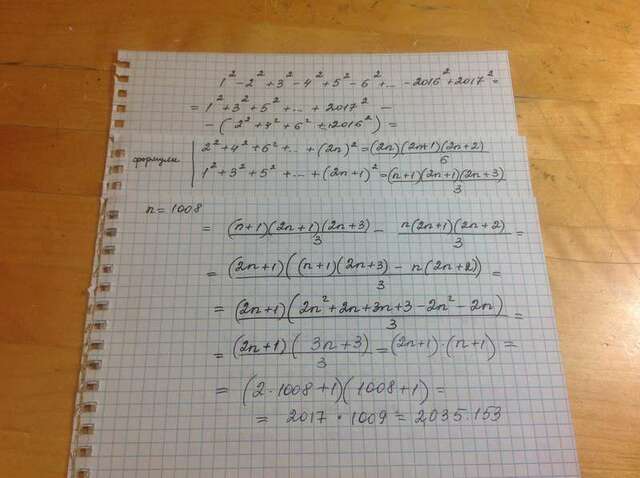 1² - 2² + 3² - 4² + 5² - 6² + ... - 2016² + 2017² =
= 1² + 3² + 5² + ... + 2017² -
- (2² + 4² + 6² + ... 2016²) =
формулы
2² + 4² + 6² + ... + (2n)² = (2n)(2n+1)(2n+2)/6
1² + 3² + 5² + ... + (2n+1)² = (n+1)(2n+1)(2n+3)/3
n = 1008
= (n+1)(2n+1)(2n+3)/3 - n(2n+1)(2n+2)/3 =
= (2n+1)((n+1)(2n+3) - n(2n+2))/3 =
= (2n+1)(2n² + 2n + 3n + 3 - 2n² - 2n)/3 =
= (2n+1)(3n+3)/3 = (2n+1)·(n+1) =
= (2·1008+1)(1008+1) =
= 2017 · 1009 = 2035.153